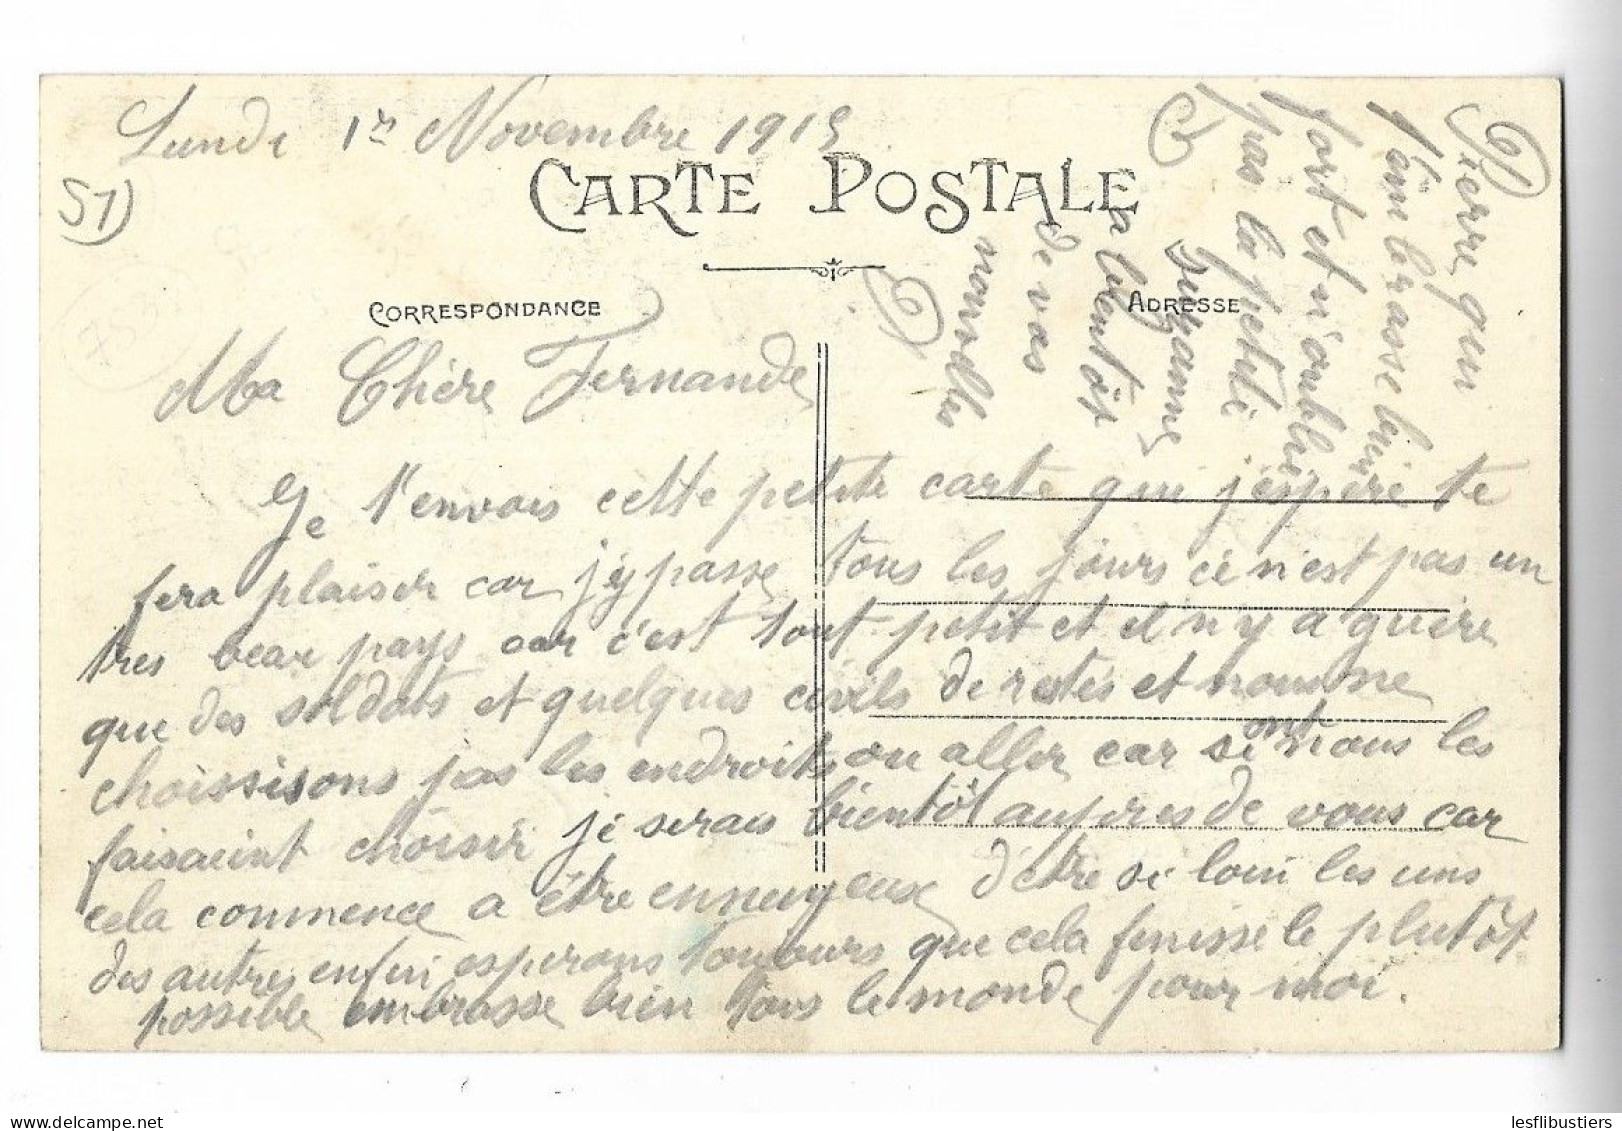 Lundi 1er Novembre 1915
CARTE POSTALE
51)
CORRESPONDANCE
ADRESSE
Ma Chère Fernande
Je t'envois cette petite carte qui j'éspère te
fera plaisir car j'éy passe tous les jours ce n'est pas un
tres beau pays car c'est tout petit et il n'y a guère
que des soldats et quelques civils de restés et nous ne
choissisons pas les endroits ou aller car si nous les
ont
faisaient choisir je serais bientôt aupres de vous car
cela commence a être ennuyeuse d'être si loin les uns
des autres enfin esperons toujours que cela finisse le plutôt
possible embrasse bien tous le monde pour moi.
Pierre qui
t'embrasse bien
fort et n'oublie
pas la petite
Suzanne
a bientôt
de vos
nouvelles
lesflibustiers